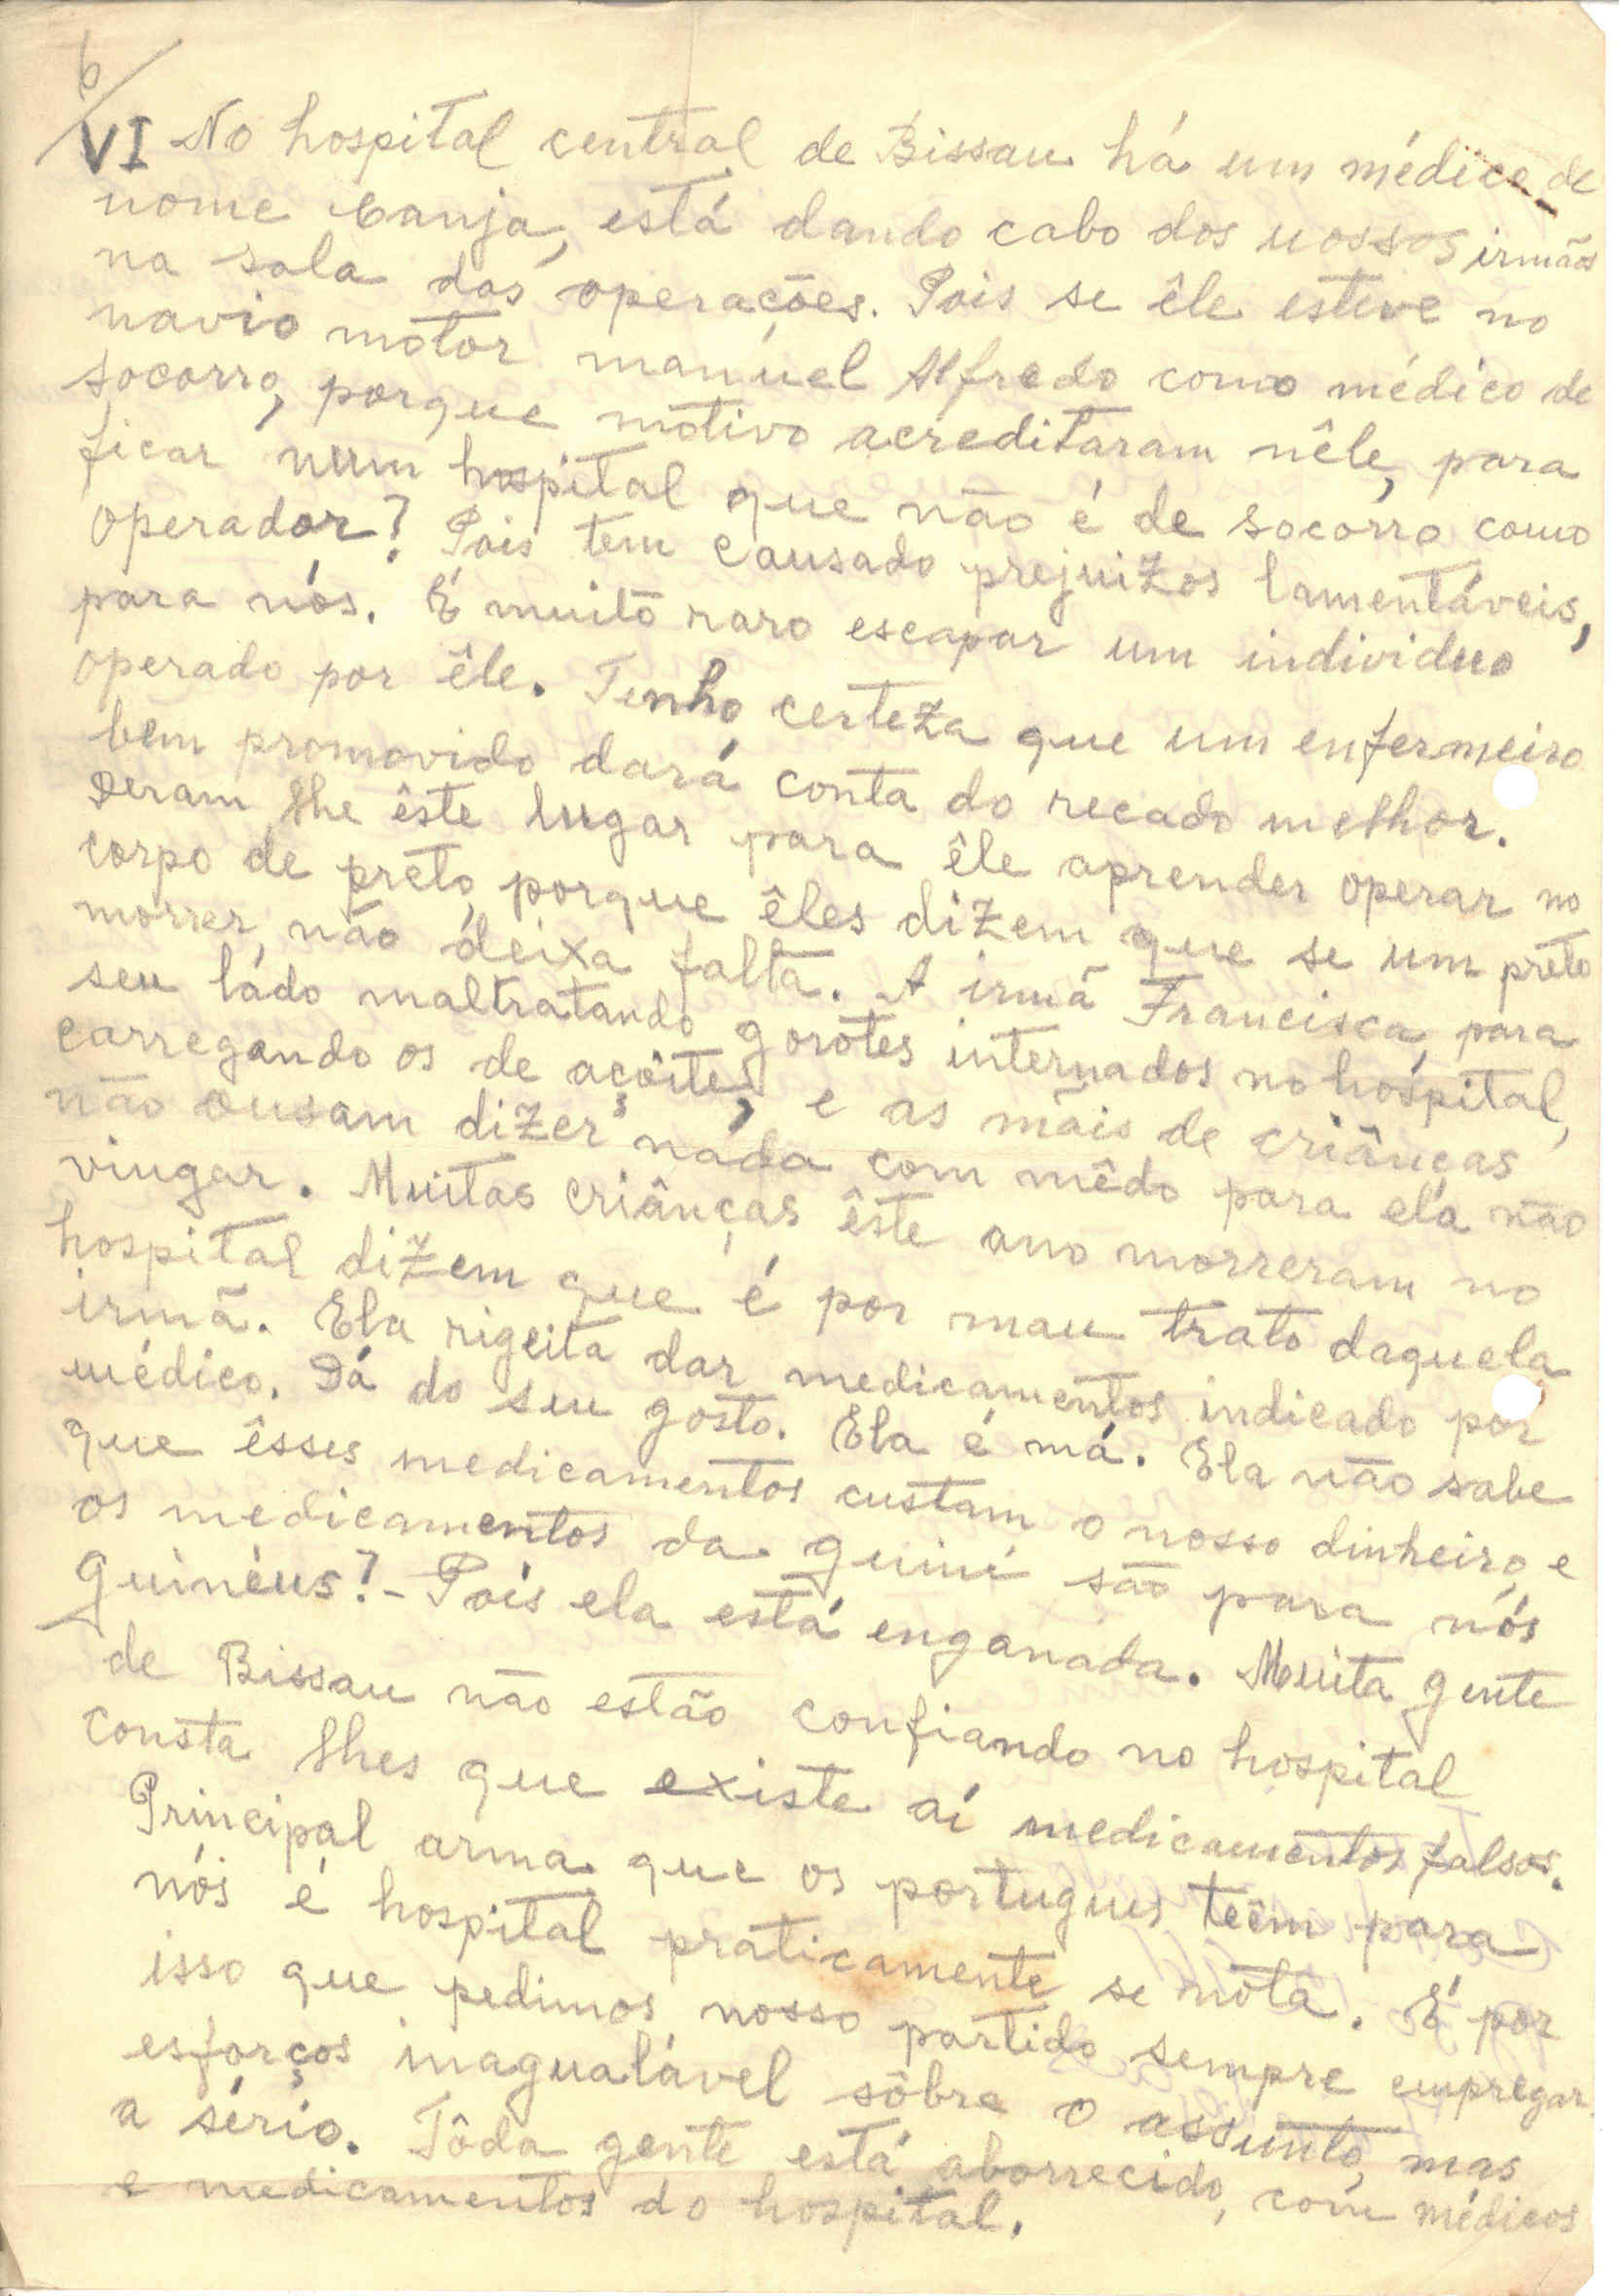 6/
VI No hospital central de Bissau há um médico de
nome Canja, está dando cabo dos nossos irmãos
na sala das operações. Pois se êle esteve no
navio motor manúel Alfredo como médico de
socorro, porque motivo acreditaram nêle, para
ficar num hospital que não é de socorro como
operador? Pois tem causado prejuizos lamentáveis,
para nós. É muito raro escapar um individuo
operado por êle. Tenho certeza que um enfermeiro
bem promovido dará conta do recado melhor.
Deram lhe êste lugar para êle aprender operar no
corpo de preto, porque êles dizem que se um preto
morrer, não deixa falta. A irmã Francisca, para
seu lado maltratando garôtes internados no hospital,
carregando os de açôites, e as mãis de criânças
não ousam dizer nada com mêdo para ela não
vingar. Muitas criânças êste ano morreram no
hospital dizem que é por mau trato daquela
irmã. Ela rigeita dar medicamentos indicado por
médico. Dá do seu gosto. Ela é má. Ela não sabe
que êsses medicamentos custam o nosso dinheiro, e
os medicamentos da guiné são para nós
Guinéus? - Pois ela está enganada. Muita gente
de Bissau não estão confiando no hospital
consta lhes que existe aí medicamentos falsos.
Principal arma que os portugues teêm para
nós é hospital praticamente se nota. É por
isso que pedimos nosso partido sempre empregar
esforços inagualável sôbre o assunto, mas
a sério. Tôda gente está aborrecido, com médicos
e medicamentos do hospital.